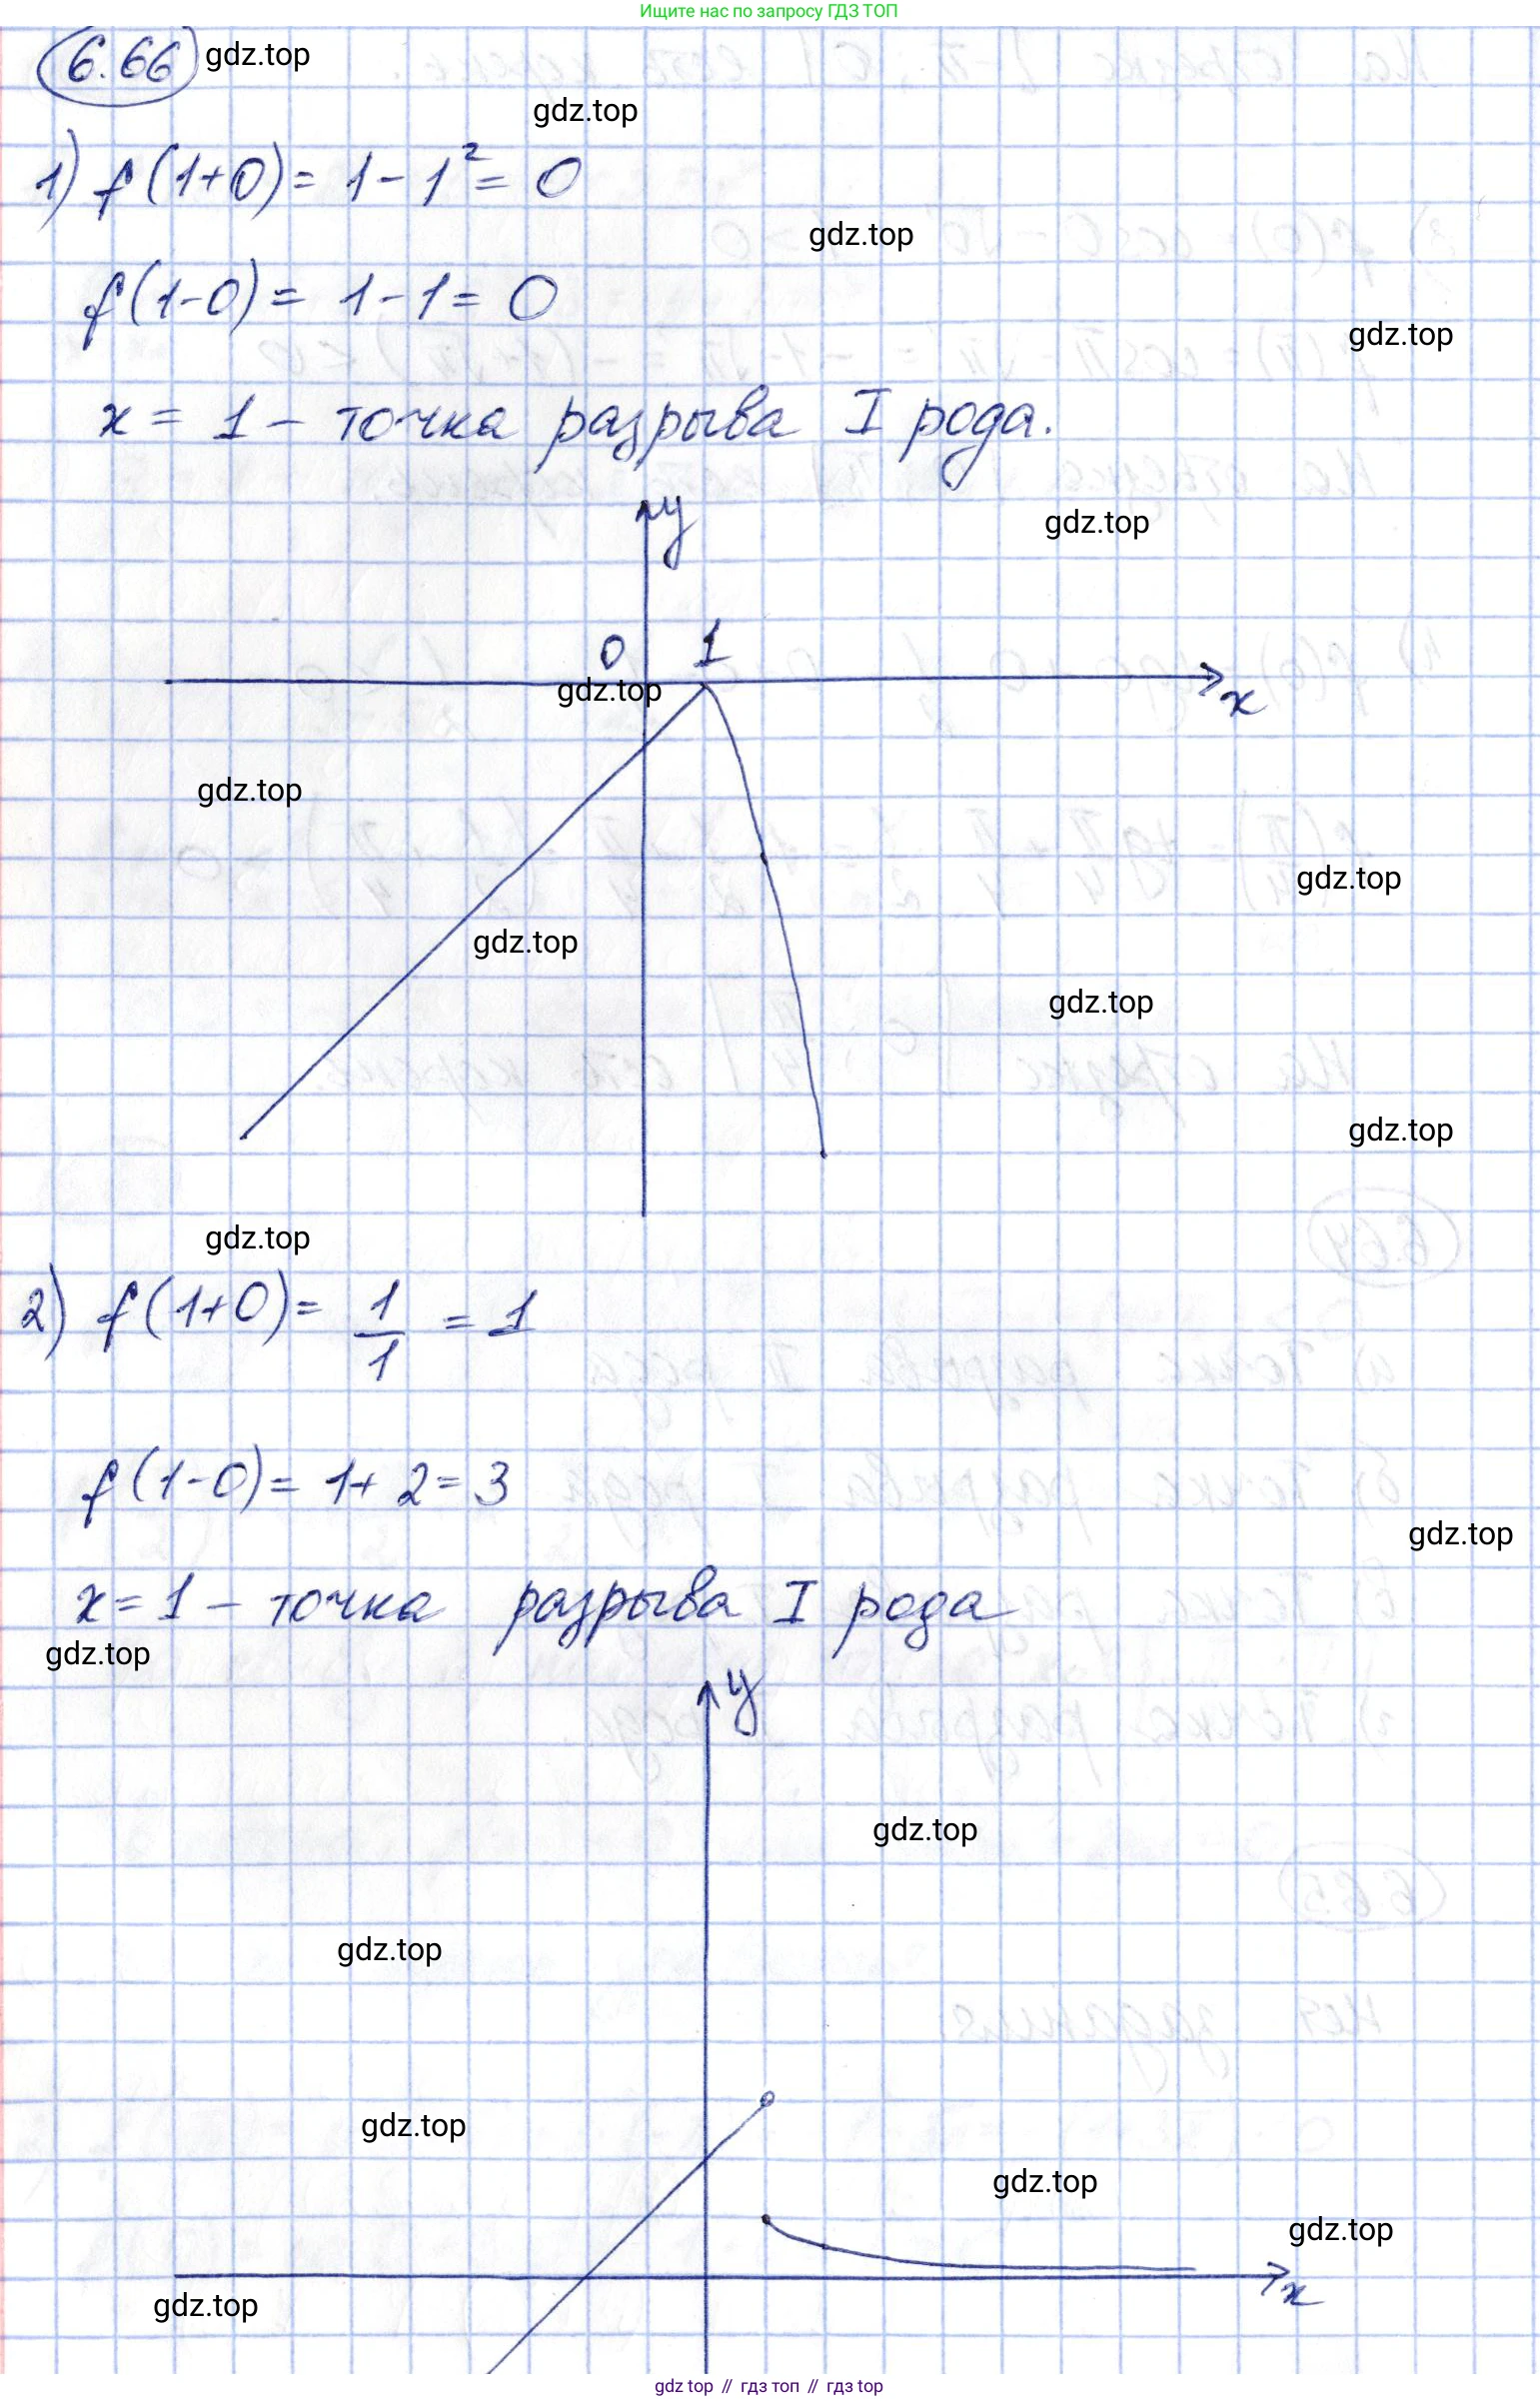 Ищите нас по запросу ГДЗ ТОП
6.66 gdz.top
gdz.top
1) f(1+0) = 1 - 1² = 0
gdz.top
f(1-0) = 1 - 1 = 0
gdz.top
x = 1 - точка разрыва I рода.
y
gdz.top
0 1
gdz.top
x
gdz.top
gdz.top
gdz.top
gdz.top
gdz.top
gdz.top
2) f(1+0) = 1/1 = 1
f(1-0) = 1 + 2 = 3
gdz.top
x = 1 - точка разрыва I рода
gdz.top
y
gdz.top
gdz.top
gdz.top
gdz.top
gdz.top
x
gdz.top
gdz top // гдз топ // гдз top